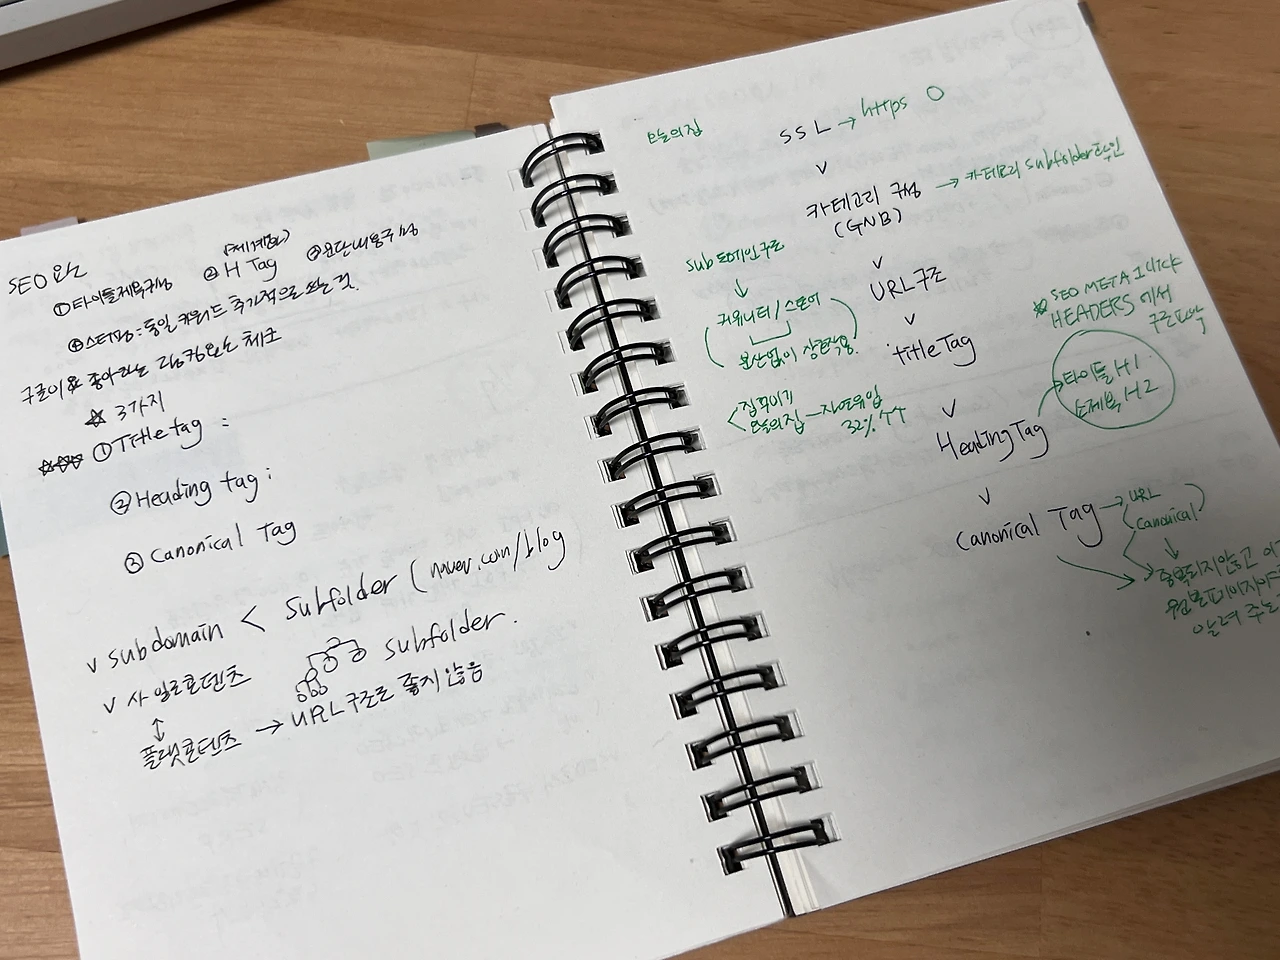 SEO 요소
① 타이틀제목구성 ② H Tag ③ 문단내용구성
④ 스터핑 : 동일 키워드 추가적으로 쓰는 것.
구글이 좋아하는 랭킹요소 체크
☆ 3가지
① Title tag :
② Heading tag :
③ Canonical Tag
v subdomain < subfolder (naver.com/blog
v 사일로콘텐츠 subfolder.
↕
플랫콘텐츠 → URL 구조로 좋지 않음
오늘의집
SSL → https O
v
카테고리 구성 → 카테고리 subfolder
(GNB)
v
URL 구조
v
title Tag
v
Heading Tag
v
Canonical Tag → URL
Canonical
sub 도메인구조
↓
커뮤니티 / 스토어
분산없이 상호작용.
집꾸미기
오늘의집 — 자연유입
32% ↑↑
☆ SEO META 1 CLICK
HEADERS 에서
구조파악
타이틀 H1
소제목 H2
중복되지않고
원본페이지
알려 주는